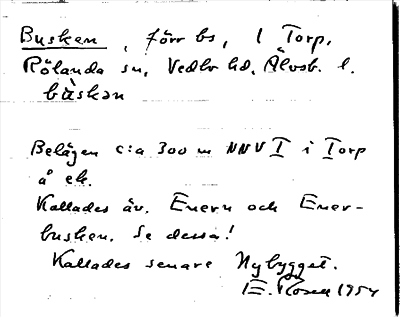 Busken, förr bs, 1 Torp,
Rölanda sn, Vedbo hd, Älvsb. l.
bùskən
Belägen c:a 300 m NNV I i Torp
å ek.
Kallades äv. Enern och Ener-
busken. Se dessa!
Kallades senare Nybygget.
E. Rosell 1954